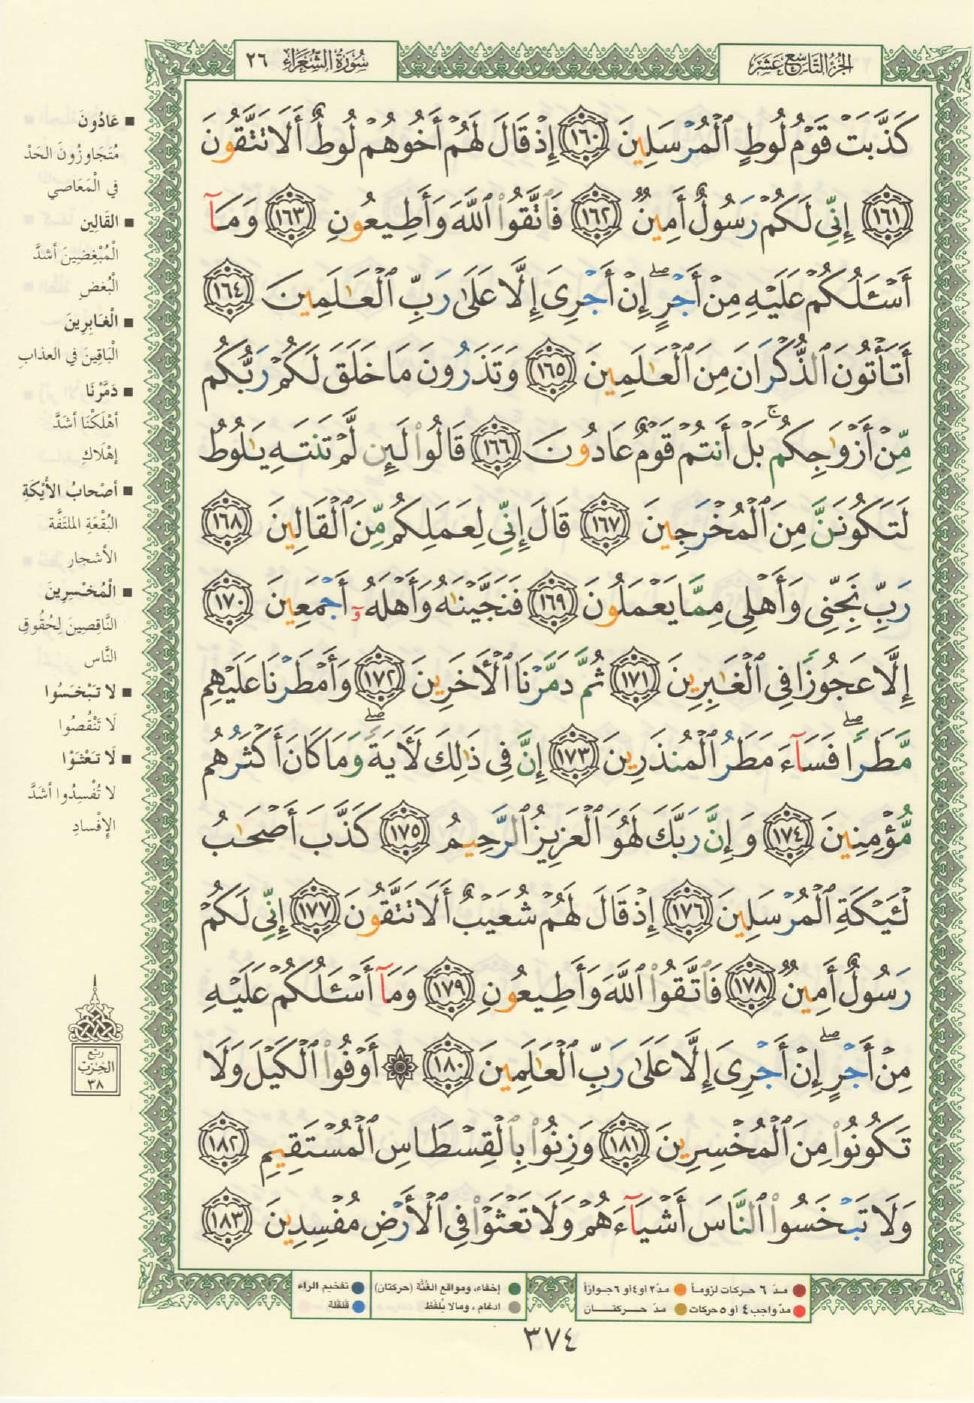 الجزء التاسع عشر
سُورَةُ الشُّعَرَاءِ ٢٦
كَذَّبَتْ قَوْمُ لُوطٍ ٱلْمُرْسَلِينَ ١٦٠ إِذْ قَالَ لَهُمْ أَخُوهُمْ لُوطٌ أَلَا تَتَّقُونَ
١٦١ إِنِّي لَكُمْ رَسُولٌ أَمِينٌ ١٦٢ فَٱتَّقُوا۟ ٱللَّهَ وَأَطِيعُونِ ١٦٣ وَمَآ
أَسْـَٔلُكُمْ عَلَيْهِ مِنْ أَجْرٍ ۖ إِنْ أَجْرِىَ إِلَّا عَلَىٰ رَبِّ ٱلْعَـٰلَمِينَ ١٦٤
أَتَأْتُونَ ٱلذُّكْرَانَ مِنَ ٱلْعَـٰلَمِينَ ١٦٥ وَتَذَرُونَ مَا خَلَقَ لَكُمْ رَبُّكُم
مِّنْ أَزْوَٰجِكُم ۚ بَلْ أَنتُمْ قَوْمٌ عَادُونَ ١٦٦ قَالُوا۟ لَئِن لَّمْ تَنتَهِ يَـٰلُوطُ
لَتَكُونَنَّ مِنَ ٱلْمُخْرَجِينَ ١٦٧ قَالَ إِنِّي لِعَمَلِكُم مِّنَ ٱلْقَالِينَ ١٦٨
رَبِّ نَجِّنِى وَأَهْلِى مِمَّا يَعْمَلُونَ ١٦٩ فَنَجَّيْنَـٰهُ وَأَهْلَهُۥٓ أَجْمَعِينَ ١٧٠
إِلَّا عَجُوزًا فِى ٱلْغَـٰبِرِينَ ١٧١ ثُمَّ دَمَّرْنَا ٱلْـَٔاخَرِينَ ١٧٢ وَأَمْطَرْنَا عَلَيْهِم
مَّطَرًا ۖ فَسَآءَ مَطَرُ ٱلْمُنذَرِينَ ١٧٣ إِنَّ فِى ذَٰلِكَ لَـَٔايَةً ۖ وَمَا كَانَ أَكْثَرُهُم
مُّؤْمِنِينَ ١٧٤ وَإِنَّ رَبَّكَ لَهُوَ ٱلْعَزِيزُ ٱلرَّحِيمُ ١٧٥ كَذَّبَ أَصْحَـٰبُ
لْـَٔيْكَةِ ٱلْمُرْسَلِينَ ١٧٦ إِذْ قَالَ لَهُمْ شُعَيْبٌ أَلَا تَتَّقُونَ ١٧٧ إِنِّي لَكُمْ
رَسُولٌ أَمِينٌ ١٧٨ فَٱتَّقُوا۟ ٱللَّهَ وَأَطِيعُونِ ١٧٩ وَمَآ أَسْـَٔلُكُمْ عَلَيْهِ
مِنْ أَجْرٍ ۖ إِنْ أَجْرِىَ إِلَّا عَلَىٰ رَبِّ ٱلْعَـٰلَمِينَ ١٨٠ ۞ أَوْفُوا۟ ٱلْكَيْلَ وَلَا
تَكُونُوا۟ مِنَ ٱلْمُخْسِرِينَ ١٨١ وَزِنُوا۟ بِٱلْقِسْطَاسِ ٱلْمُسْتَقِيمِ ١٨٢
وَلَا تَبْخَسُوا۟ ٱلنَّاسَ أَشْيَآءَهُمْ وَلَا تَعْثَوْا۟ فِى ٱلْأَرْضِ مُفْسِدِينَ ١٨٣
■ عَادُونَ
مُتَجَاوِزُونَ الحَدَّ
في الْمَعَاصي
■ القَالِين
الْمُبْغِضِينَ أشدَّ
الْبُغضِ
■ الْغَابِرِينَ
الْبَاقِينَ في العذابِ
■ دَمَّرْنَا
أهْلَكْنَا أشدَّ
إهْلَاكٍ
■ أصْحَابُ الأَيْكَةِ
البُقْعَةِ الملتفَّة
الأشجار
■ الْمُخْسِرِينَ
النَّاقِصِينَ لِحُقُوقِ
النَّاسِ
■ لا تَبْخَسُوا
لَا تَنْقُصُوا
■ لَا تَعْثَوْا
لا تُفْسِدُوا أشدَّ
الإفْسادِ
ربع
الحزب
٣٨
مدّ ٦ حركات لزوماً مدّ ٢ أو ٤ أو ٦ جوازاً
مدّ واجب ٤ أو ٥ حركات مدّ حركتــان
إخفاء، ومواقع الغُنَّة (حركتان) تفخيم الراء
ادغام، ومالا يُلفَظ قلقلة
٣٧٤